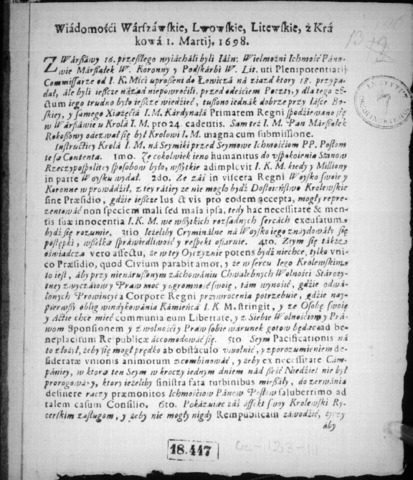 Wiádomośći Wárszáwskie, Lwowskie, Litewskie, z Krá
kowá 1. Martij, 1698.
Z Wárszáwy 16. przeszłego wyiácháli byli Iáśn: Wielmożni Ichmość Páno
wie Márszałek W. Koronny y Podskárbi W. Lit. uti Plenipotentiarij
Commissarze od I K Mśći uproszeni do Łowiczá na ziazd ktory 18. przypa-
dał, ále byli ieszcze názad niepowroćili, przed odeściem Poczty, y dla tego zś
ctum iego trudno było ieszcze wiedzieć, tuszono iednák dobrze przy łásce Bos-
kiey, y sámego Xiążęćiá I M. Kárdynałá Primatem Regni spodziewano się
w Wárszáwie u Krolá I M. pro 24 cadentis. Sam też I M. Pan Márszałek
Rokoszowy odezwał się był Krolowi I M. magna cum submissione.
Instructiey Krolá I M. ná Seymiki przed Seymowe Ichmośćiom PP. Posłom
te są Contenta. 1mo. Ze cokolwiek ieno humanitus do vspokoienia Stanow
Rzeczypospolitey sposobow było, wszytkie ádimplevit I K M. kiedy y Milliony
in parte Woysku wydał. 2do. Ze záś in viscera Regni Woysko swoie y
Koronne wprowádźił, z tey rátiey że nie mogło bydź Dostoieństwo Krolewskie
sine Præsidio, gdzie ieszcze lus ct vis pro eodem accepta, mogły repræ-
zentowáć non speciem mali sed mala ipsa, tedy hac necessitate & men-
tis suæ innocentia I K. M. we wszytkich rozsądnych sercách excusatum
bydź się rozumie. 3tio Ieżeliby Crimináłne ná Woysko iego znáydowáły się
postępki, wszelka spráwiedliwość y respekt ofiaruie. 4to. Ztym się tákże
oświádcza vero affectu, że w tey Oyczyznie potens bydź niechce, tylko vni-
co Præsidio, quod Civium parabit amor, y że w sercu Iego Krolewskim
to iest, áby przy nienáruszonym záchowániu Chwalebnych Wolnośći Stároży-
tney zwyczáiowy Práw moc y ogromność swoię, tám wynosić, gdzie odwa-
lonych Prowincyi a Corpore Regni przywrocenia potrzebuie, gdzie náy-
pierwszy oblig windykowánia Kámieńcá I K M. stringit, y ze Osobę swoię
y Actie chce mieć communia cum Libertate, y z Siebie Wolnośćiom y Prá-
wom Sponsionem y z wolności y Praw sobie warunek gotow będzie ad be-
neplacitum Re publicæ accommodowáć się. 5to Seym Pacificationis ná
to złożył, żeby się mogł prędko ab obstaculo vwolnić, y z porozumieniem de-
sideratæ vnionis animorum zcombinowáć, y żeby ex necessitate Cam-
pániey, w ktora ten Seym w kroczy iednym dniem nád sześć Niedziel nie był
prorogowány, ktory ieżeliby sinistra fata turbinibus mieszáły, do zerwania
definere raczy præmonitos Ichmośćiow Pánow Posłow saluberrimo ad
talem casum Consilio. 6to Pokázuiąc záś affekt swoy Krolewski Ry-
cerskim zasługom, y żeby nie mogły nigdy Rempublicam záwodzić, życzy
áby
18.447